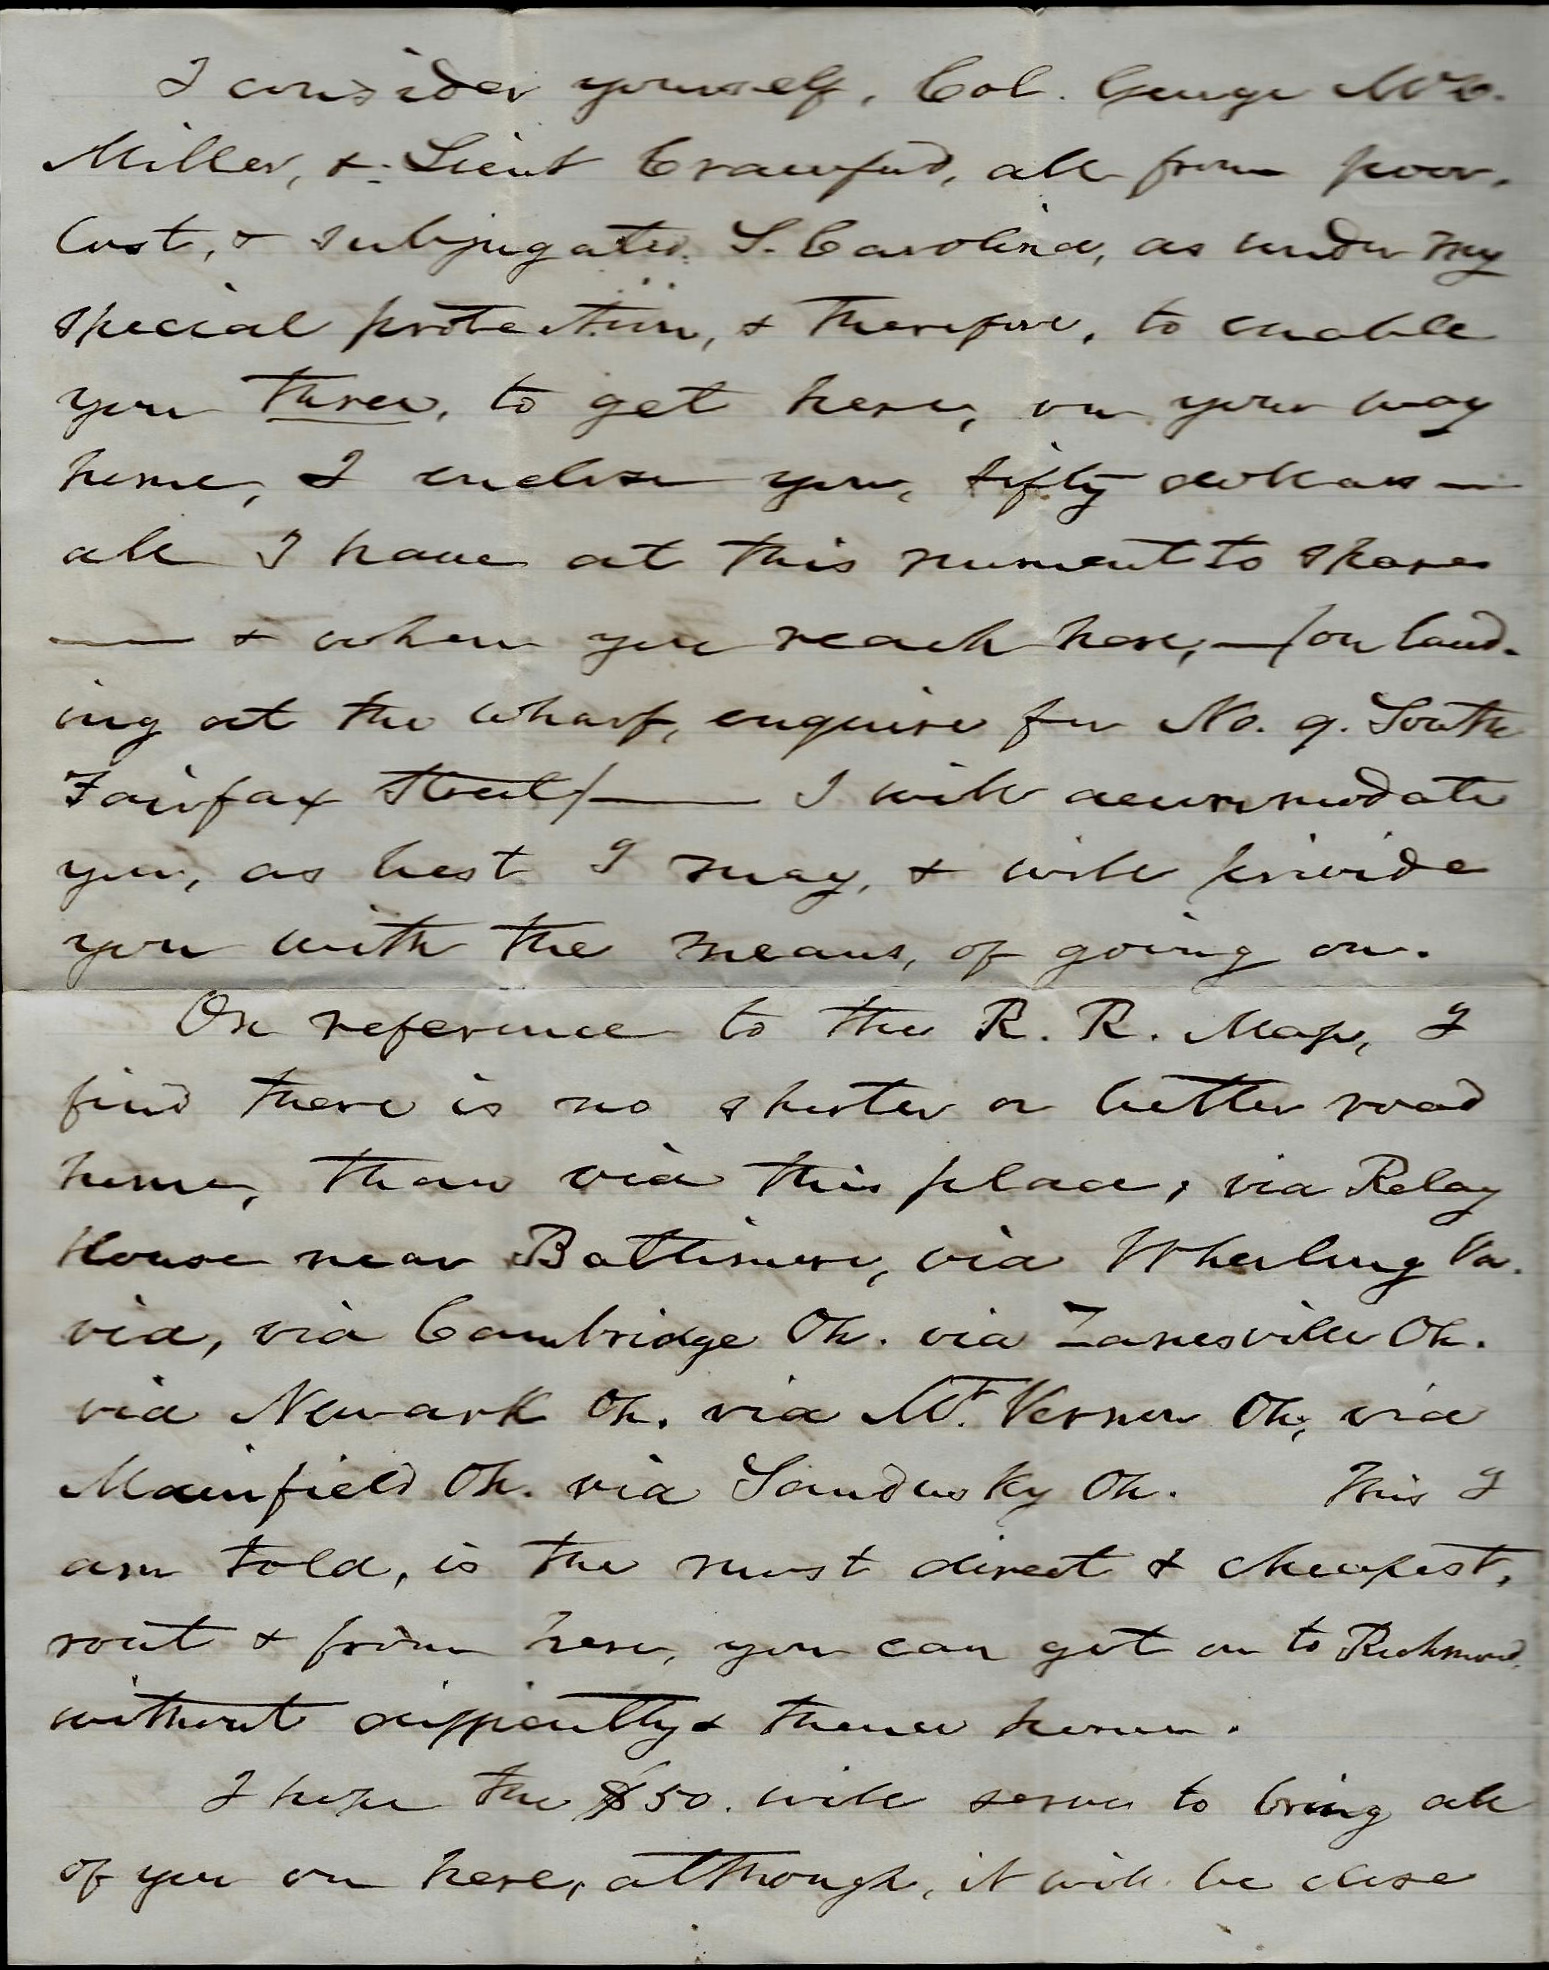 I consider yourself, Col. George McD.
Miller, & Lieut Crawford, all from poor,
lost, & subjugated S. Carolina, as under my
special protection, & therefore, to enable
you three, to get here, on your way
home, I enclose you, fifty dollars —
all I have at this moment to spare
— & when you reach here, — (on land-
ing at the wharf, enquire for No. 9. South
Fairfax Street) — I will accommodate
you, as best I may, & will provide
you with the means, of going on.
On reference to the R. R. Map, I
find there is no shorter or better road
home, than via this place, via Relay
House near Baltimore, via Wheeling Va.
via, via Cambridge Oh. via Zanesville Oh.
via Newark Oh. via Mt. Vernon Oh, via
Mainfield Oh. via Sandusky Oh. This I
am told, is the most direct & cheapest,
rout & from here, you can get on to Richmond,
without difficulty & thence home.
I hope the $50. will serve to bring all
of you on here, although, it will be close